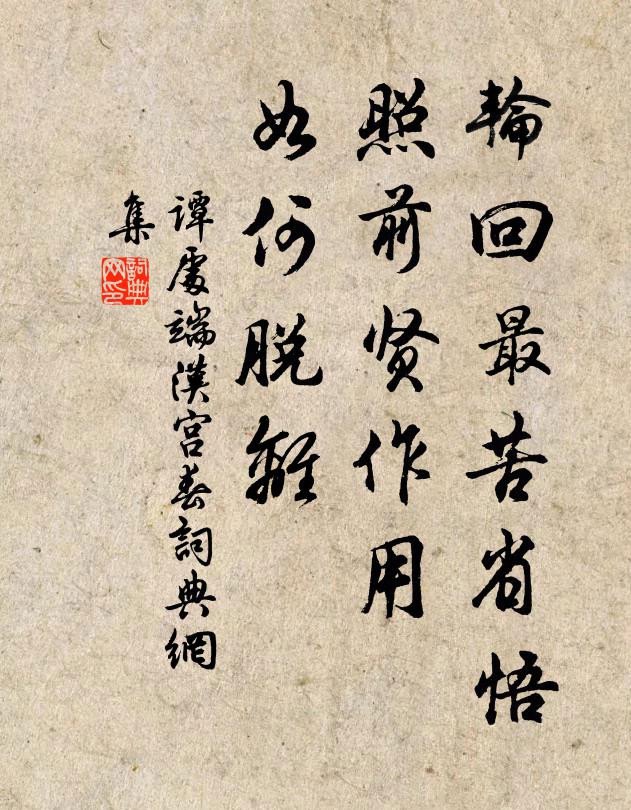 輪回最苦省悟
照前贤作用
如何脱離
譚處端漢宮春詞典網
集
詞典
网印